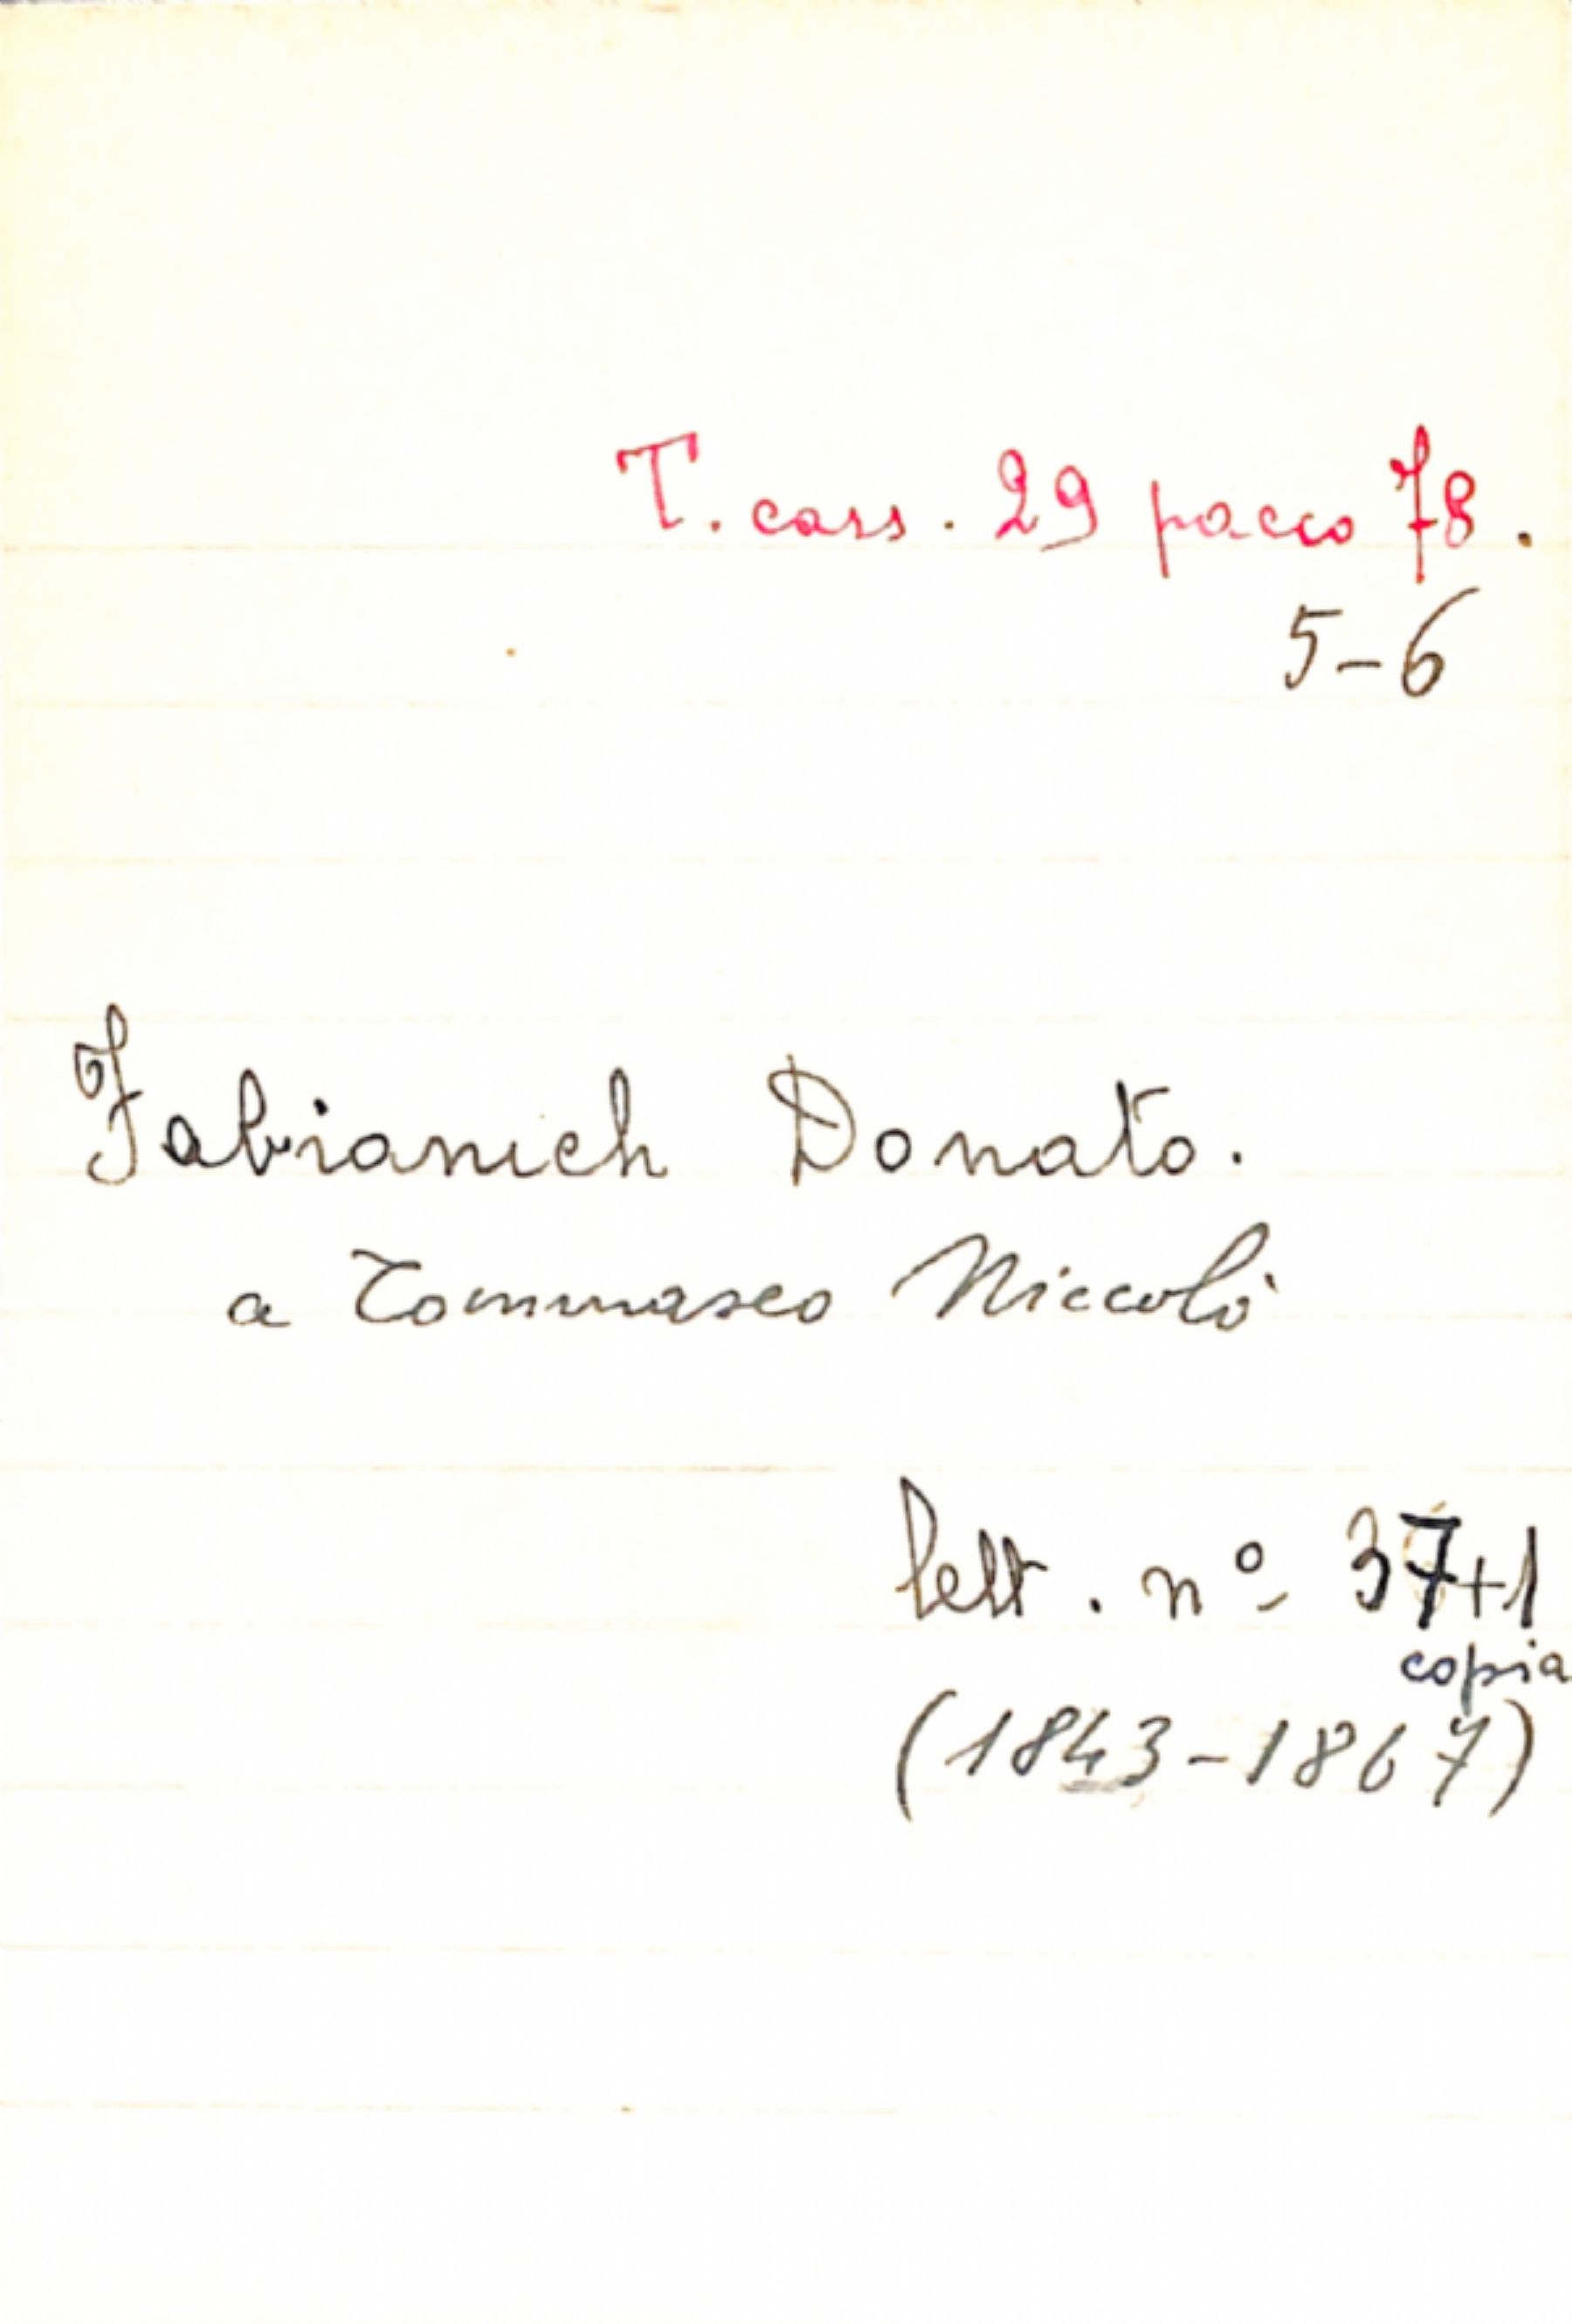 T. cass. 29 pacco 78.
5-6
Fabianich Donato.
a Tommaseo Niccolò
lett. nº 37+1
copia
(1843-1867)